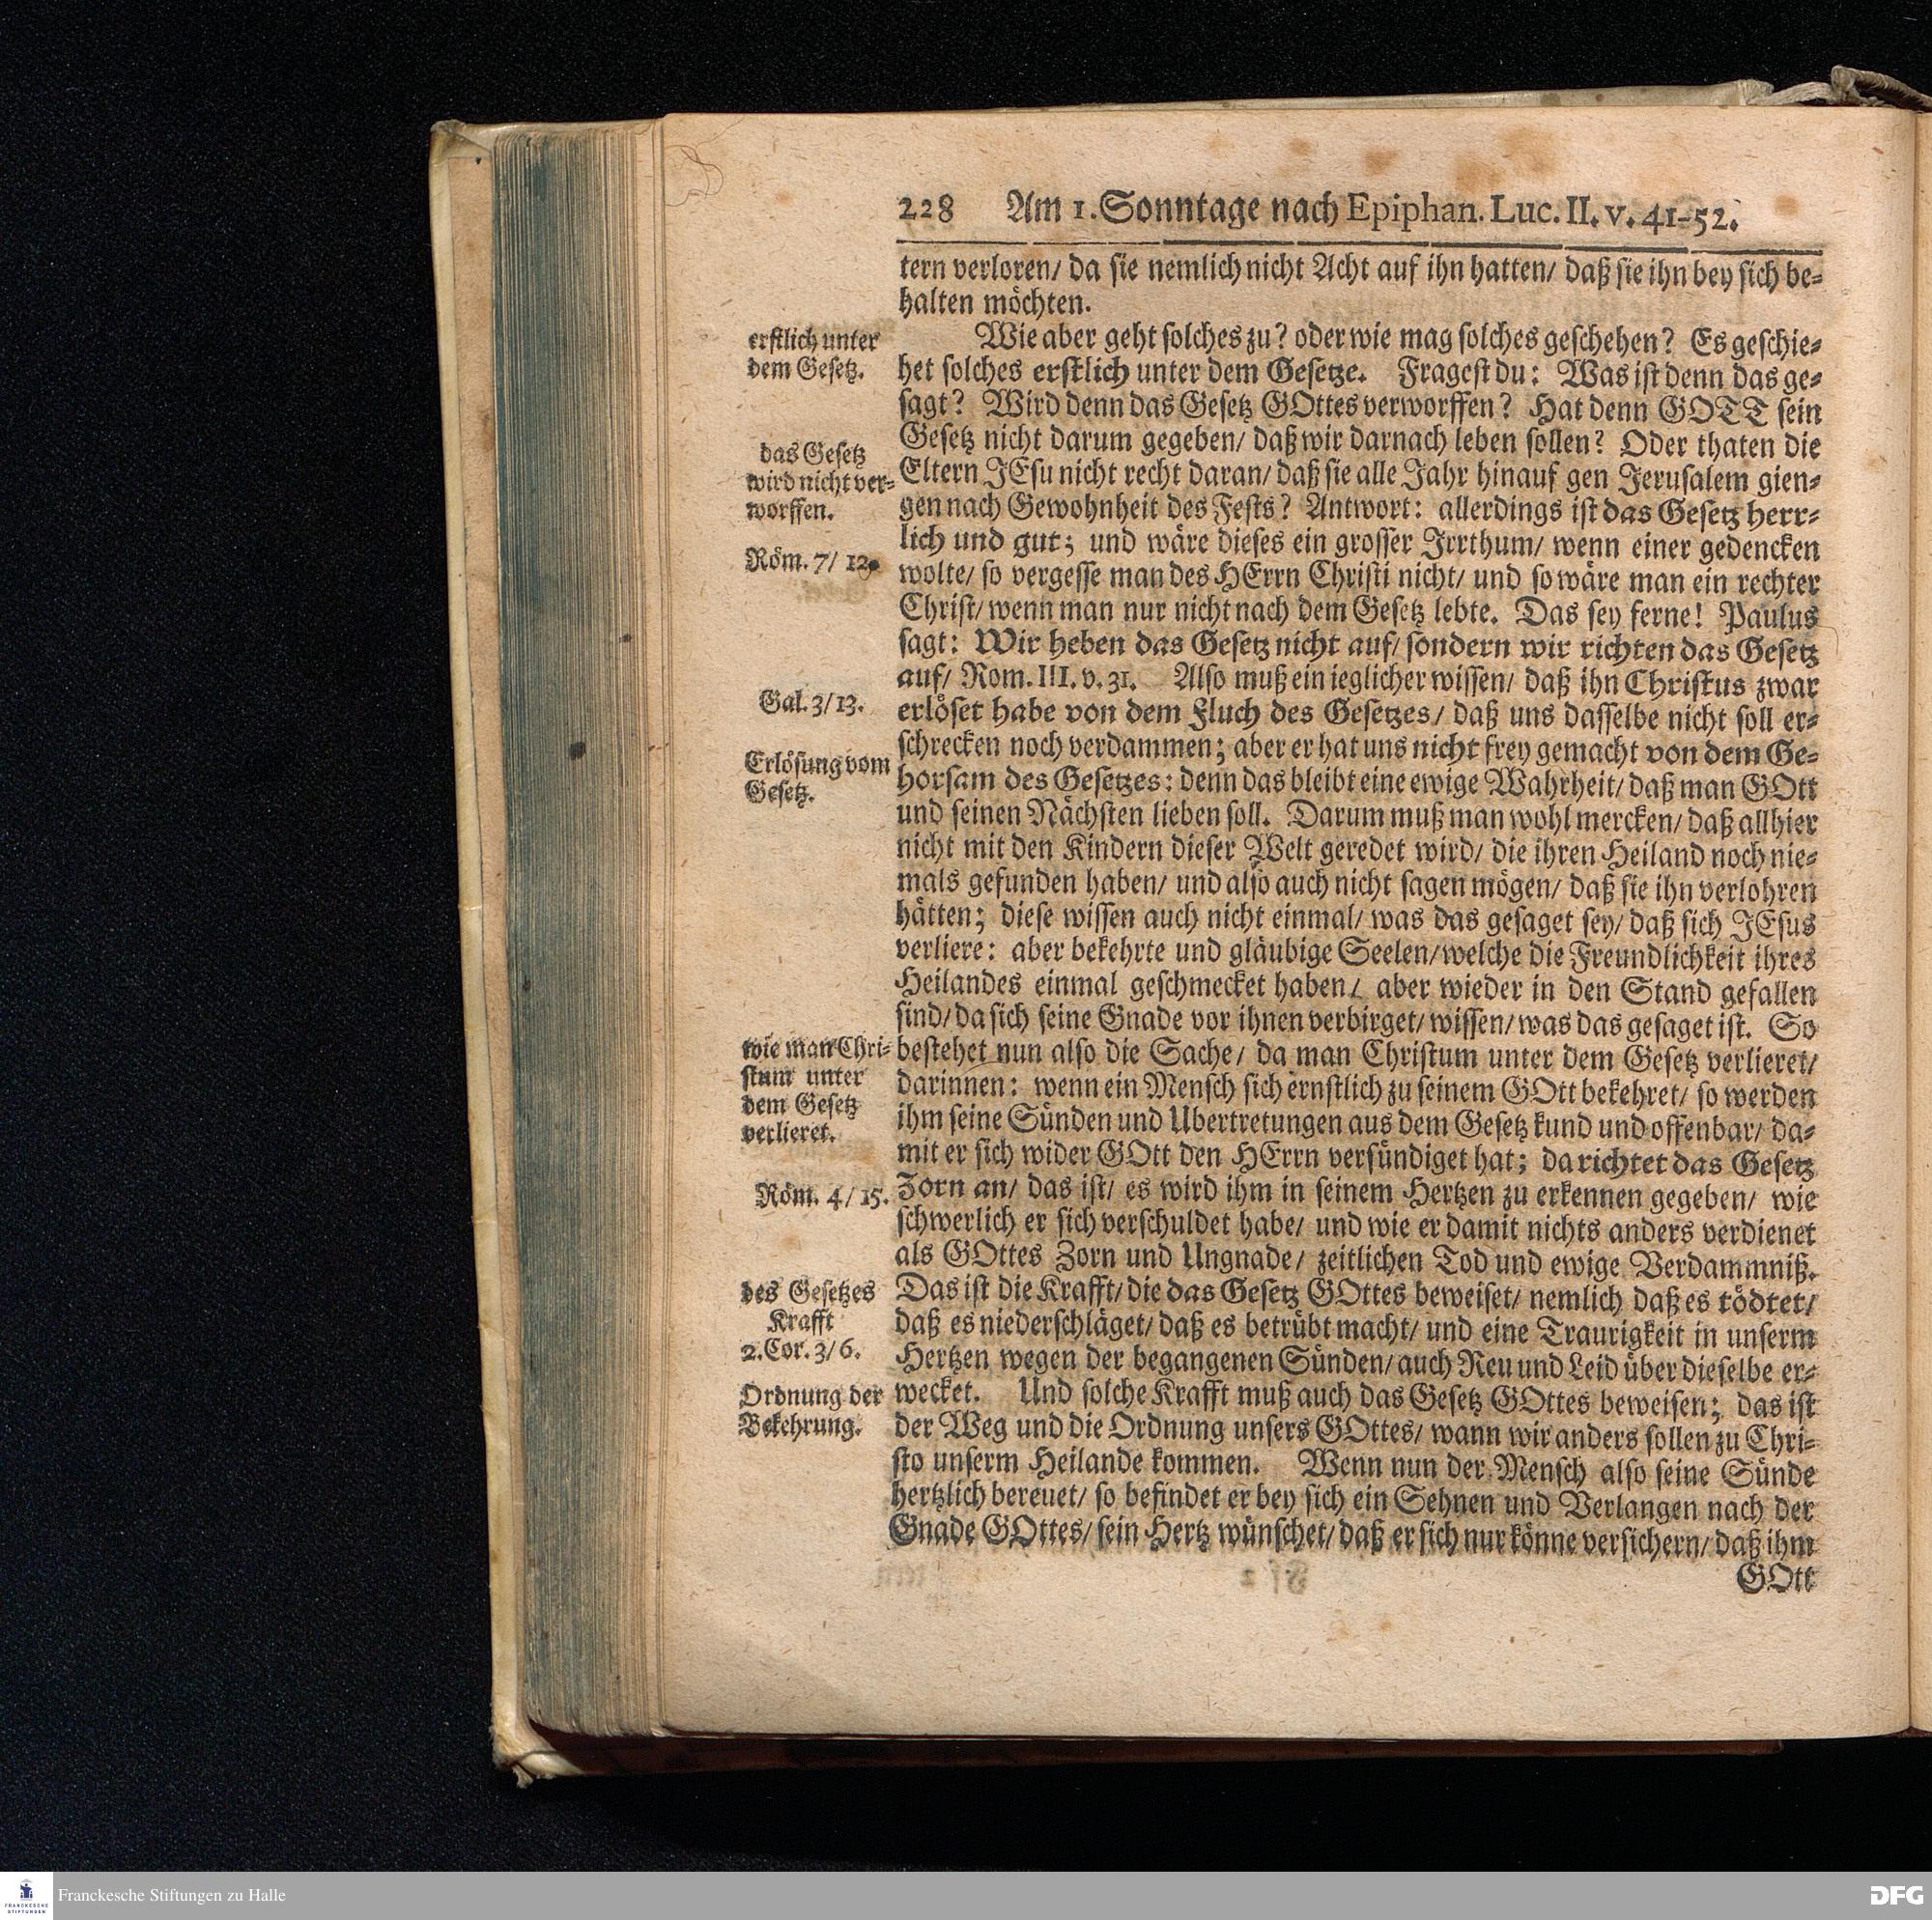 228 Am 1. Sonntage nach Epiphan. Luc. II. v. 41-52.
tern verloren/ da sie nemlich nicht Acht auf ihn hatten/ daß sie ihn bey sich be-
halten möchten.
Wie aber geht solches zu? oder wie mag solches geschehen? Es geschie-
het solches erstlich unter dem Gesetze. Fragest du: Was ist denn das ge-
sagt? Wird denn das Gesetz GOttes verworffen? Hat denn GOTT sein
Gesetz nicht darum gegeben/ daß wir darnach leben sollen? Oder thaten die
Eltern JEsu nicht recht daran/ daß sie alle Jahr hinauf gen Jerusalem gien-
gen nach Gewohnheit des Fests? Antwort: allerdings ist das Gesetz herr-
lich und gut; und wäre dieses ein grosser Irrthum/ wenn einer gedencken
wolte/ so vergesse man des HErrn Christi nicht/ und so wäre man ein rechter
Christ/ wenn man nur nicht nach dem Gesetz lebte. Das sey ferne! Paulus
sagt: Wir heben das Gesetz nicht auf/ sondern wir richten das Gesetz
auf/ Rom. III. v. 31. Also muß ein ieglicher wissen/ daß ihn Christus zwar
erlöset habe von dem Fluch des Gesetzes/ daß uns dasselbe nicht soll er-
schrecken noch verdammen; aber er hat uns nicht frey gemacht von dem Ge-
horsam des Gesetzes: denn das bleibt eine ewige Wahrheit/ daß man GOtt
und seinen Nächsten lieben soll. Darum muß man wohl mercken/ daß allhier
nicht mit den Kindern dieser Welt geredet wird/ die ihren Heiland noch nie-
mals gefunden haben/ und also auch nicht sagen mögen/ daß sie ihn verlohren
hätten; diese wissen auch nicht einmal/ was das gesaget sey/ daß sich JEsus
verliere: aber bekehrte und gläubige Seelen/ welche die Freundlichkeit ihres
Heilandes einmal geschmecket haben/ aber wieder in den Stand gefallen
sind/ da sich seine Gnade vor ihnen verbirget/ wissen/ was das gesaget ist. So
bestehet nun also die Sache/ da man Christum unter dem Gesetz verlieret/
darinnen: wenn ein Mensch sich ernstlich zu seinem GOtt bekehret/ so werden
ihm seine Sünden und Ubertretungen aus dem Gesetz kund und offenbar/ da-
mit er sich wider GOtt den HErrn versündiget hat; da richtet das Gesetz
Zorn an/ das ist/ es wird ihm in seinem Hertzen zu erkennen gegeben/ wie
schwerlich er sich verschuldet habe/ und wie er damit nichts anders verdienet
als GOttes Zorn und Ungnade/ zeitlichen Tod und ewige Verdammniß.
Das ist die Krafft/ die das Gesetz GOttes beweiset/ nemlich daß es tödtet/
daß es niederschläget/ daß es betrübt macht/ und eine Traurigkeit in unserm
Hertzen wegen der begangenen Sünden/ auch Reu und Leid über dieselbe er-
wecket. Und solche Krafft muß auch das Gesetz GOttes beweisen; das ist
der Weg und die Ordnung unsers GOttes/ wann wir anders sollen zu Chri-
sto unserm Heilande kommen. Wenn nun der Mensch also seine Sünde
hertzlich bereuet/ so befindet er bey sich ein Sehnen und Verlangen nach der
Gnade GOttes/ sein Hertz wünschet/ daß er sich nur könne versichern/ daß ihm
GOtt
erstlich unter
dem Gesetz.
das Gesetz
wird nicht ver-
worffen.
Röm. 7/ 12.
Gal. 3/ 13.
Erlösung vom
Gesetz.
wie man Chri-
stum unter
dem Gesetz
verlieret.
Röm. 4/ 15.
des Gesetzes
Krafft
2. Cor. 3/ 6.
Ordnung der
Bekehrung.
Franckesche Stiftungen zu Halle
FRANCKESCHE
STIFTUNGEN
DFG